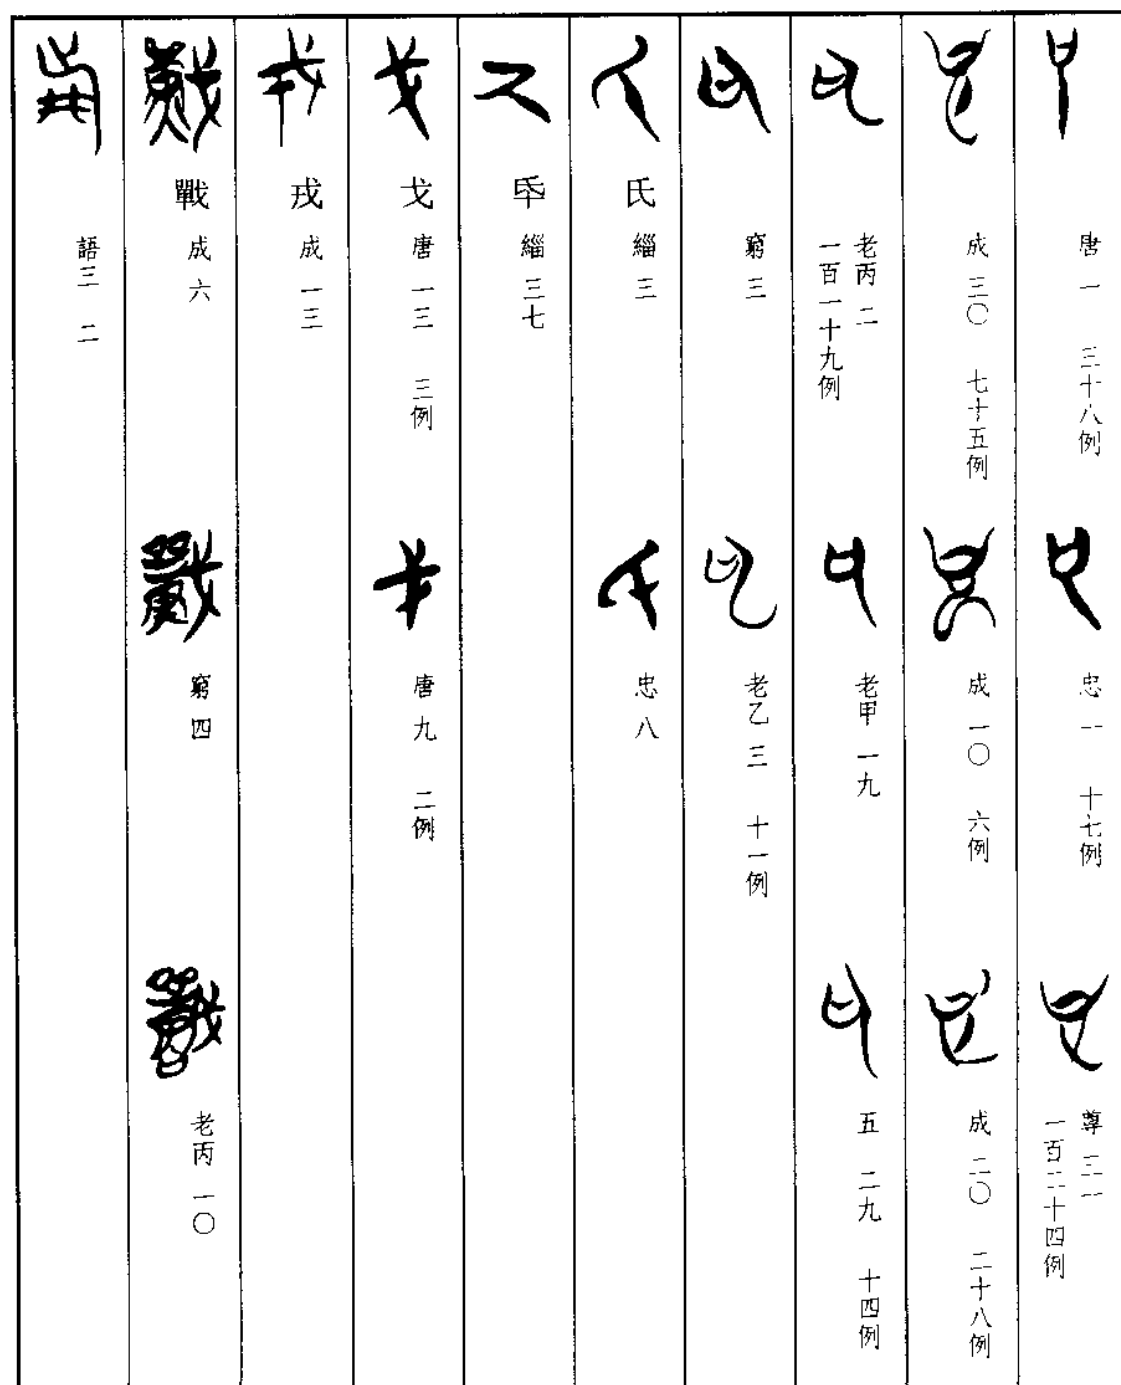 唐 一 三十八例
忠 一 十七例
尊 三一
一百二十四例
成 三〇 七十五例
成 一〇 六例
成 二〇 二十八例
老丙 二
一百一十九例
老甲 一九
五 二九 十四例
窮 三
老乙 三 十一例
氏
緇 三
忠 八
氒
緇 三七
戈
唐 一三 三例
唐 九 二例
戎
成 一三
戰
成 六
窮 四
老丙 一〇
語三 二